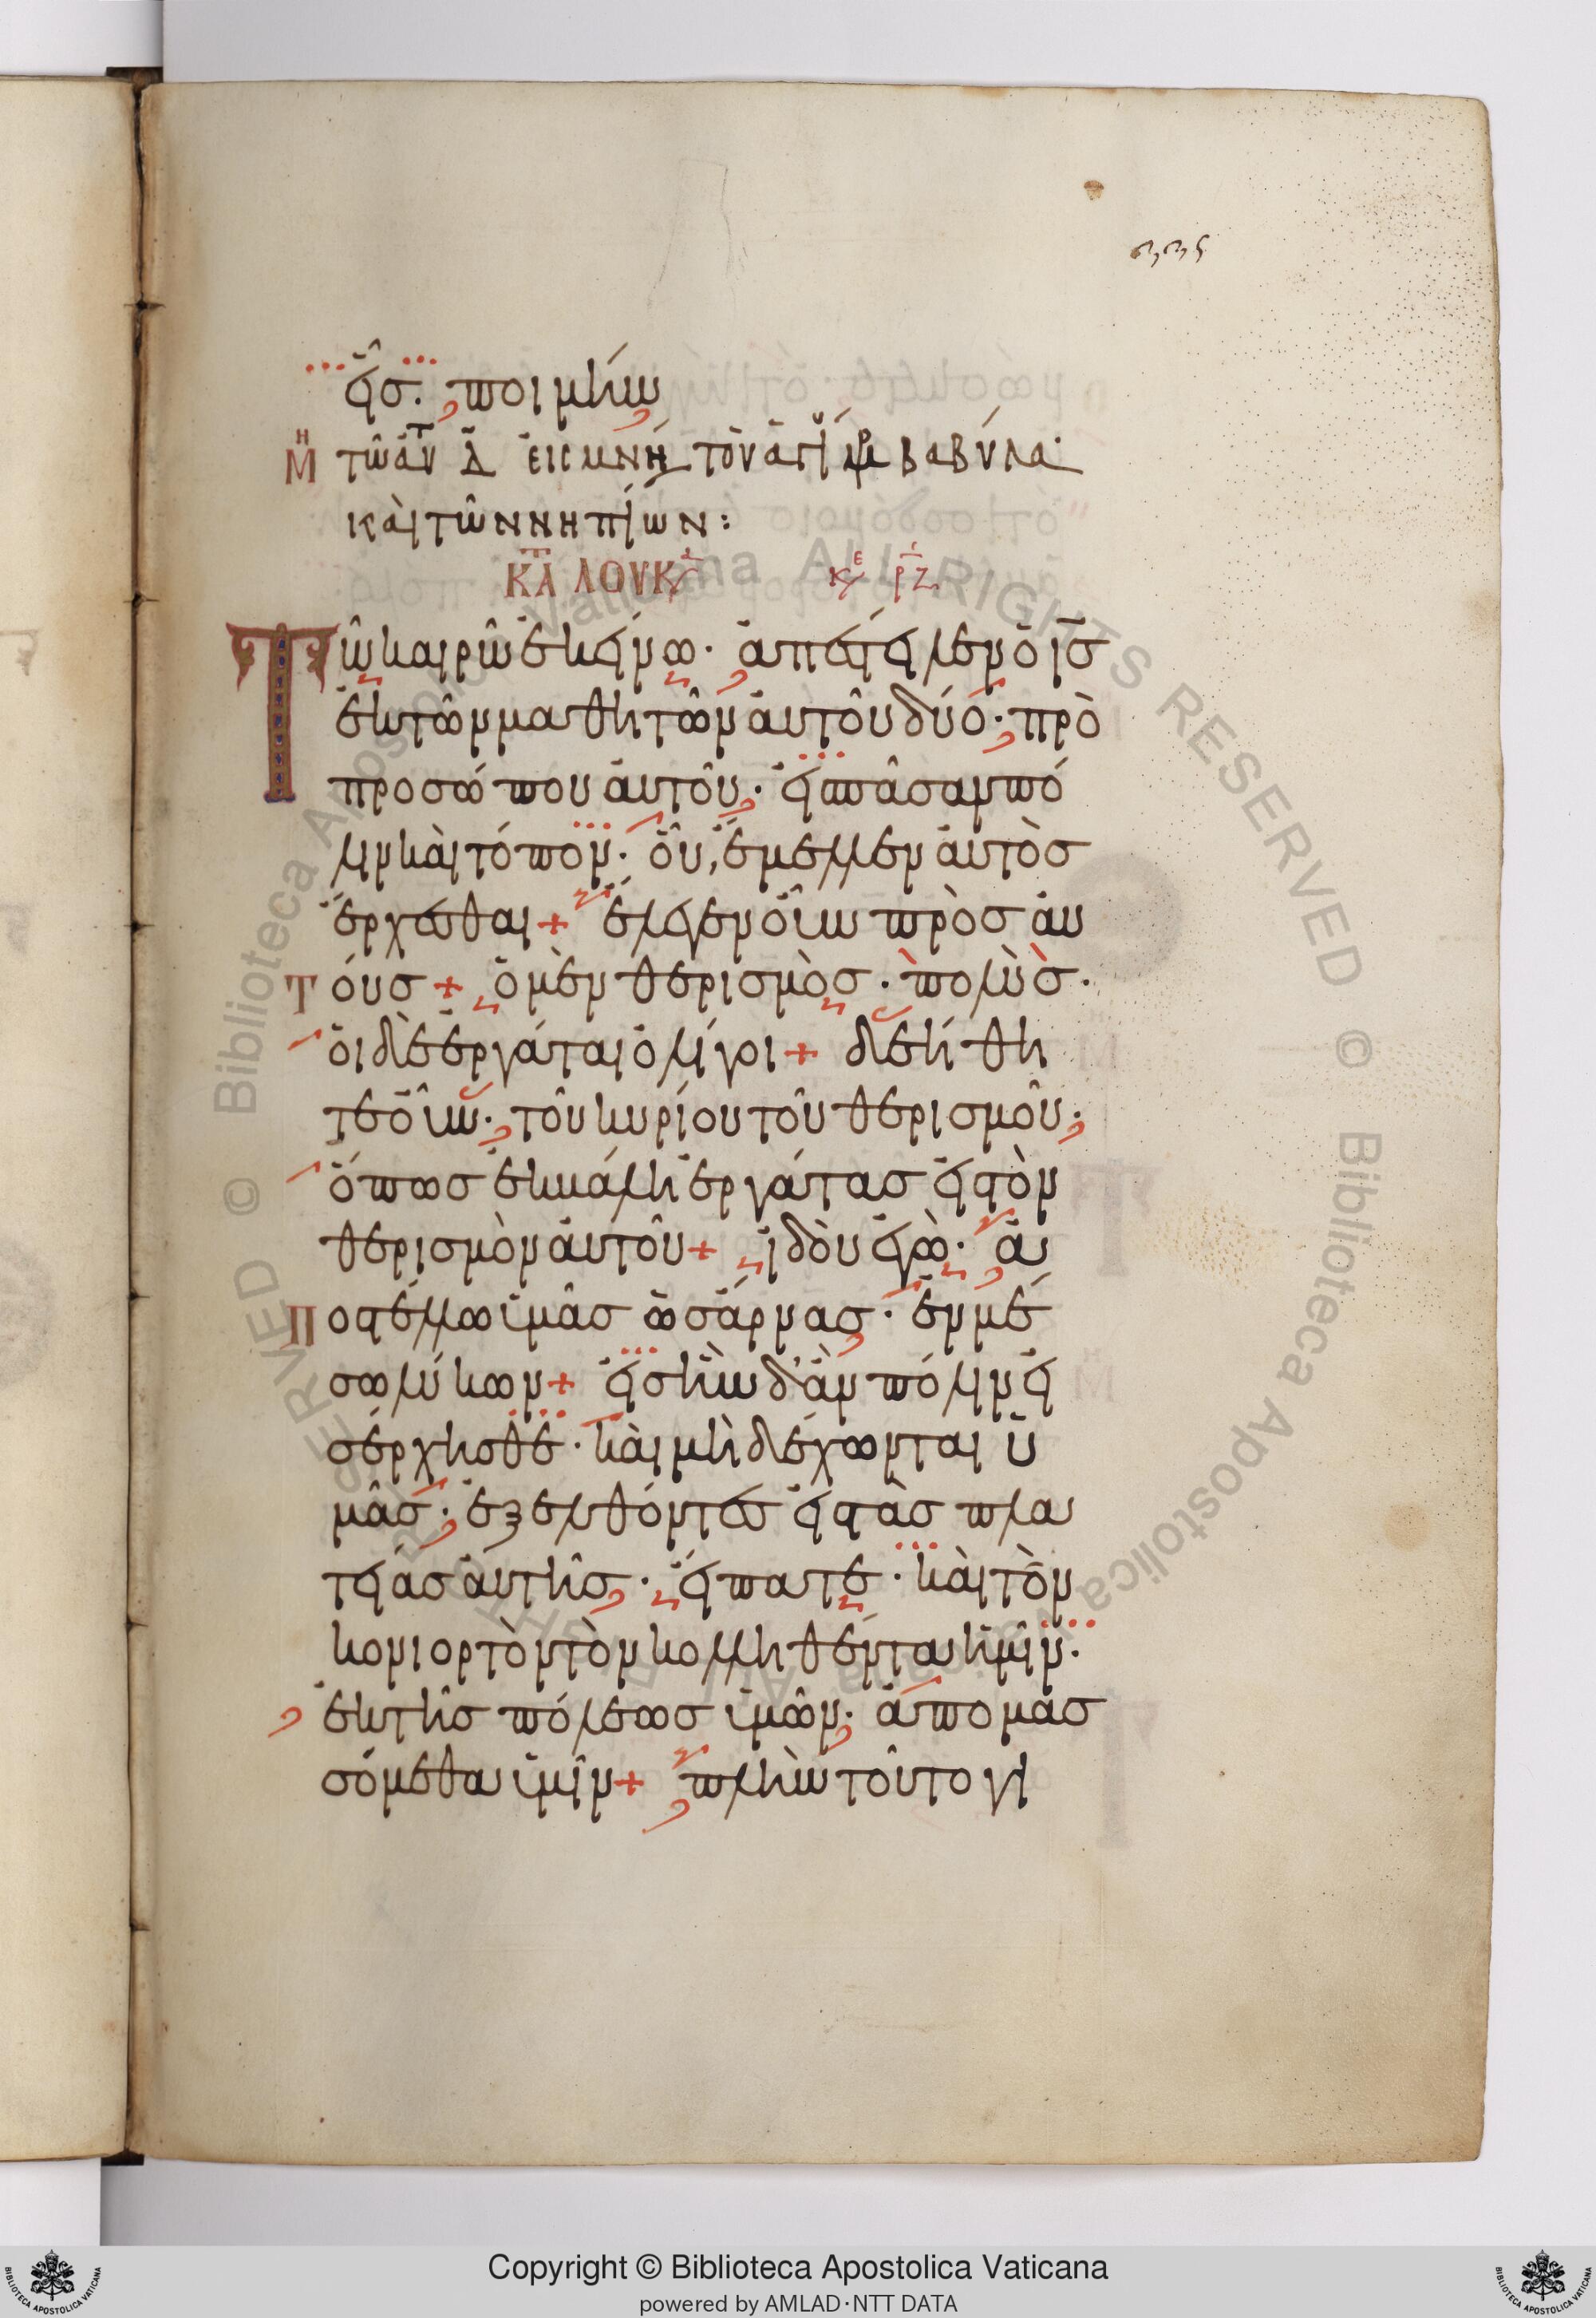 εἷσ. ποιμήν
Μη τῶ αὐτ Δ εἰς μνή τοῦ ἁγί μρ βαβύλα
καὶ τῶν νηπίων:
Κτ Λ ΛΟΥΚ κε ρζ
Τῶ καιρῶ ἐκείνω· ἀπέστειλεν ὁ ισ
ἐκ τῶν μαθητῶν ἀυτοῦ δύο· πρὸ
προσώπου ἀυτοῦ· εἰσ πᾶσαν πό
λιν καὶ τόπον· οὗ, ἔμελλεν ἀυτὸσ
ἔρχεσθαι + ἔλεγεν οῦν πρὸσ ἀυ
τούσ + ὁ μὲν θερισμὸσ· πολὺσ·
ὁι δὲ ἐργάται ὀλίγοι + δεήθη
τε οῦν· τοῦ κυρίου τοῦ θερισμοῦ·
ὅπωσ ἐκβάλη ἐργάτασ εἰσ τὸν
θερισμὸν ἀυτοῦ + ἰδοὺ ἐγὼ· ἀ
ποστέλλω ὑμᾶσ ὡσ ἄρνασ· ἐν μέ
σω λύκων + εἰσ ἣν δ' ἂν πόλιν εἰ
σέρχησθε· καὶ μὴ δέχωνται ὑ
μᾶσ· ἐξελθόντεσ εἰσ τὰσ πλα
τείασ ἀυτῆσ· εἴπατε· καὶ τὸν
κονιορτὸν τὸν κολληθέντα ἡμῖν·
ἐκ τῆσ πόλεωσ ὑμῶν· ἀπομασ
σόμεθα ὑμῖν + πλὴν τοῦτο γι
Copyright © Biblioteca Apostolica Vaticana
powered by AMLAD·NTT DATA